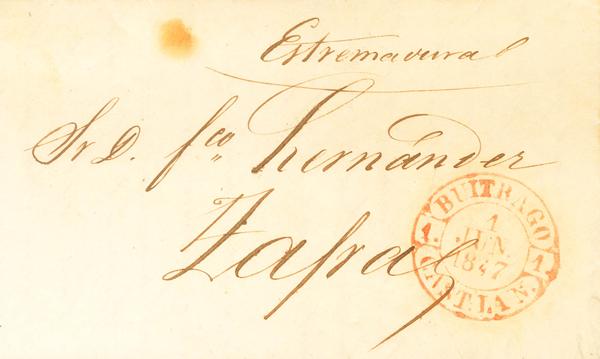 Estremadura
Sr D. Fco Hernández
Zafra
BUITRAGO
1
JUN.
1847
1. 1.
CAST. LA N.